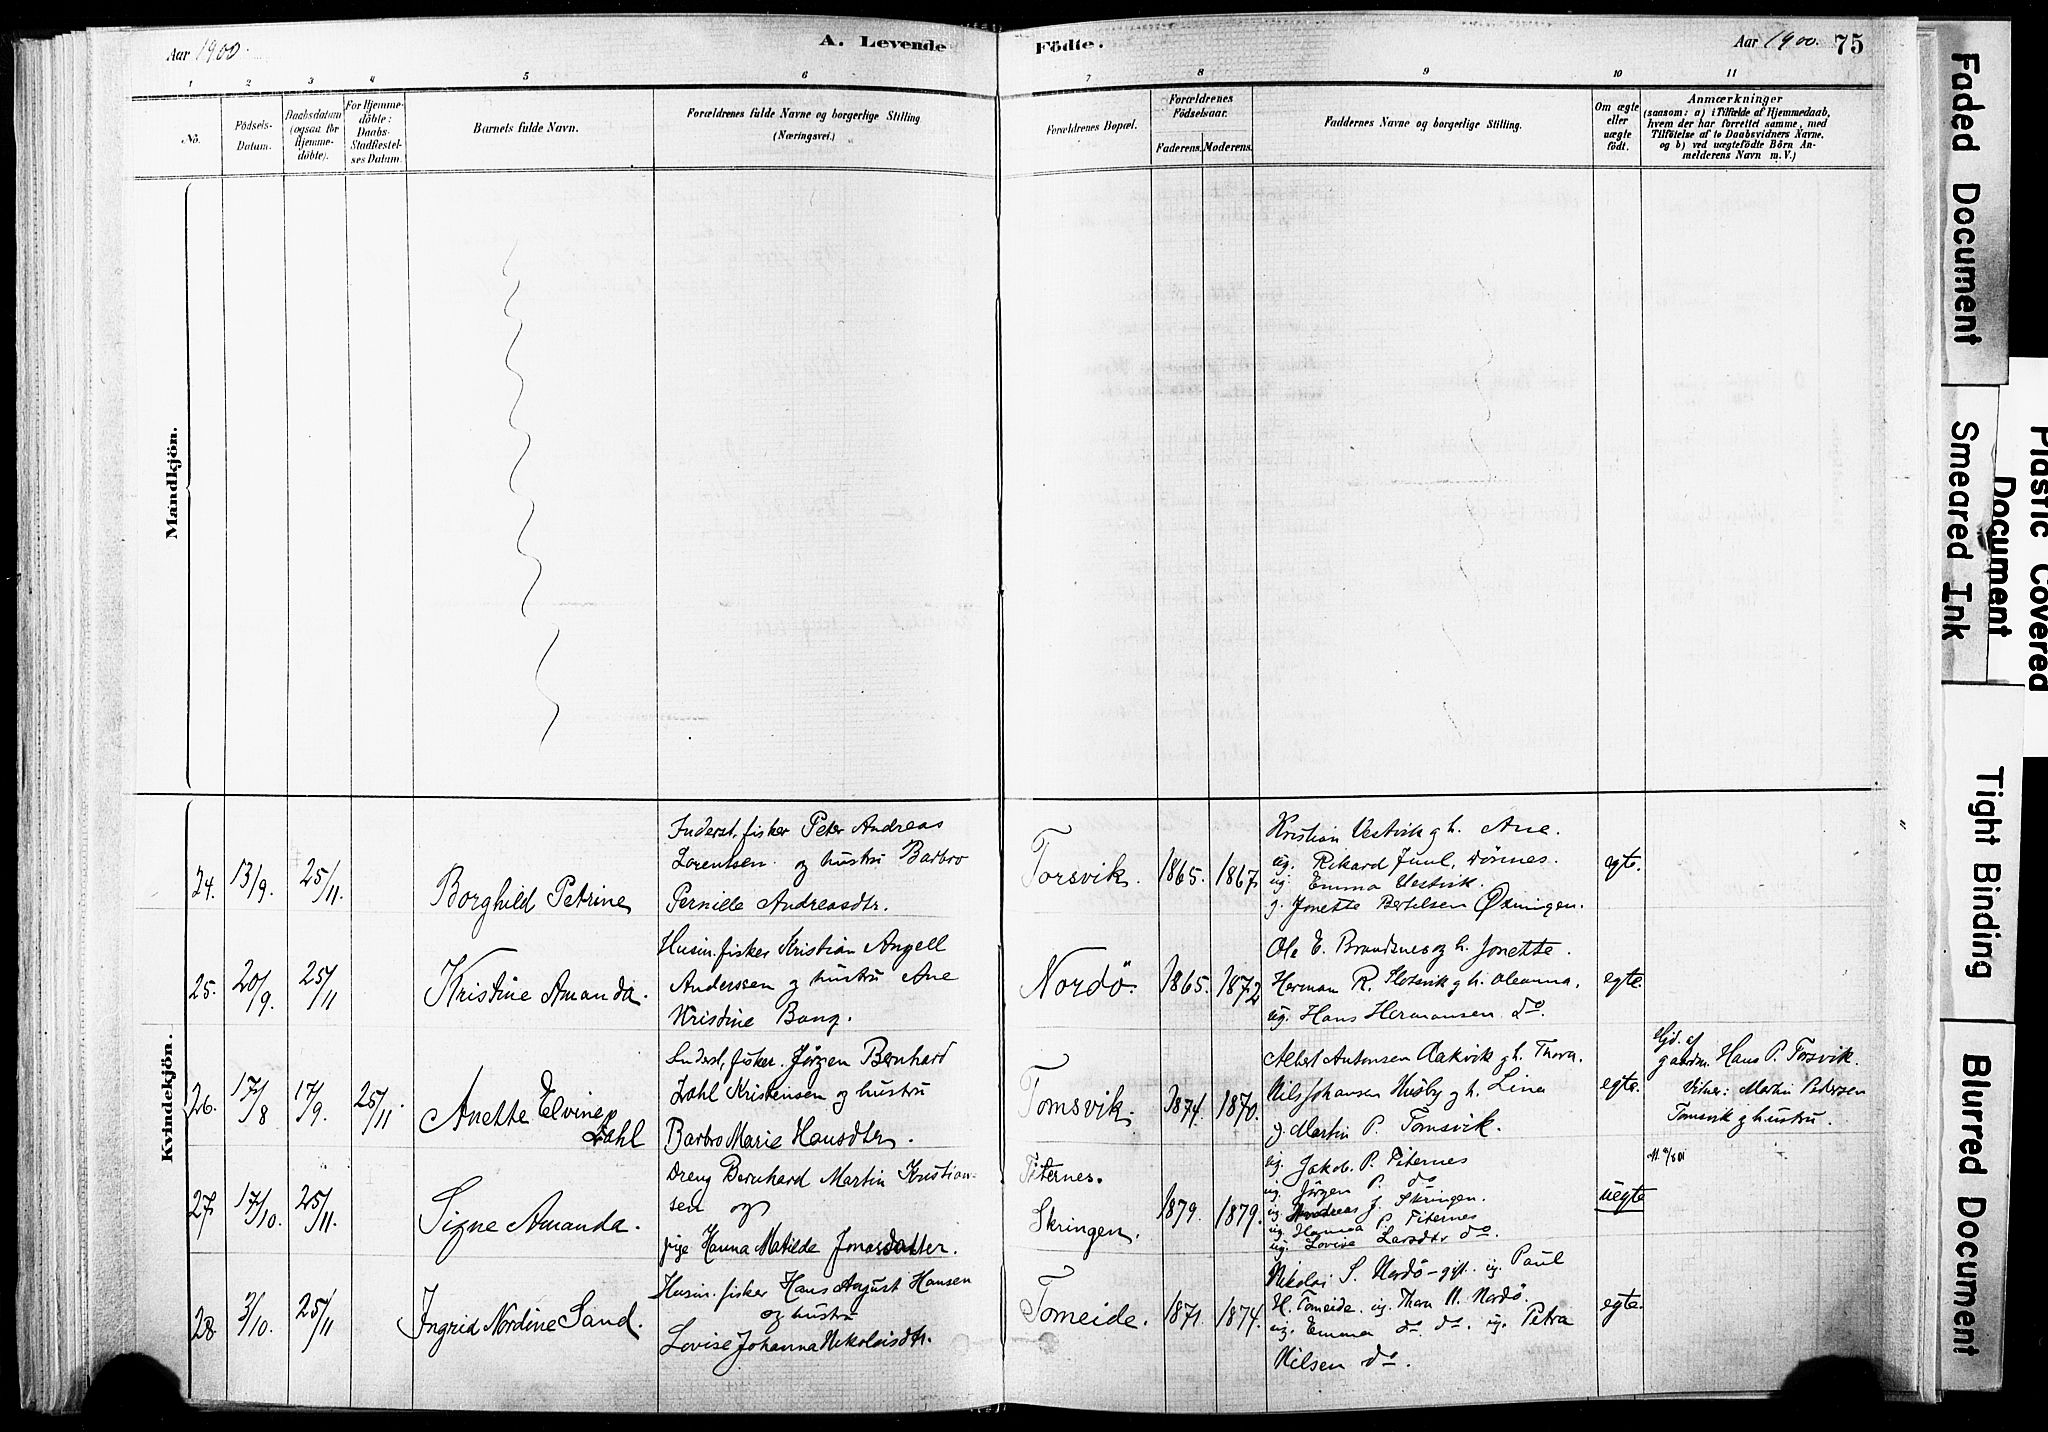 Aar 1900.
A. Levende
Födte.
Aar 1900.
75
1 2 3 4 5 6 7 8 9 10 11
No.
Födsels-
Datum.
Daabsdatum
(ogsaa for
Hjemme-
döbte).
For Hjemme-
döbte:
Daabs-
Stadfæstel-
ses Datum.
Barnets fulde Navn.
Forældrenes fulde Navne og borgerlige Stilling
(Næringsvei.)
Forældrenes Bopæl.
Forældrenes
Födselsaar.
Faderens. Moderens.
Faddernes Navne og borgerlige Stilling.
Om ægte
eller
uægte
födt.
Anmærkninger
(saasom: a) i Tilfælde af Hjemmedaab,
hvem der har forrettet samme, med
Tilföielse af to Daabsvidners Navne,
og b) ved uægtefödte Börn An-
melderens Navn m. V.)
Mandkjön.
Kvindekjön.
24. 13/9. 25/11.
Borghild Petrine
Inderst, fisker Peter Andreas
Lorentsen og hustru Barbro
Pernille Andreasdtr.
Torsvik. 1865. 1867.
Kristian Vestvik g h. Ane.
ug. Rikard Juul,
ug. Emma Vestvik.
g. Jonette Bertelsen Øxningen.
egte.
25. 20/9. 25/11
Kristine Amanda.
Husm. fisker Kristian Angell
Anderssen og hustru Ane
Kristine Bang.
Nordö. 1865. 1872
Ole E. Brandsnes og h. Jonette.
Herman R. Slotsvik g h. Oleanna.
ug. Hans Hermansen do.
egte.
26. 17/8 17/9. 25/11.
Anette Elvine
Dahl
Inderst, fisker. Jörgen Bernhard
Dahl Kristensen og hustru
Barbro Marie Hansdtr.
Tomsvik. 1874. 1870.
Albert Antonsen Aakvik g h. Thora.
Nils Johansen Husby g h. Lina
g. Martin P. Tomsvik.
egte.
Hjd. af
gaardm. Hans P. Torsvik.
Vitner: Martin Pedersen
Tomsvik g hustru.
27 17/10. 25/11.
Signe Amanda.
Dreng Bernhard Martin Kristian-
sen og
pige Hanna Matilde Jonasdatter.
Titernes.
Skringen. 1879. 1879.
ug. Jakob. P. Titernes
ug. Jörgen P. do
ug. Andreas J. Skringen.
ug. Hanna P. Titernes
ug. Lovise Larsdtr do.
uegte
28. 3/10. 25/11
Ingrid Nordine Sand.
Husm. fisker Hans August Hansen
og hustru
Lovise Johanna Nikolaisdtr.
Tomeide. 1871. 1874.
Nikolai S. Nordö - gift. ug. Paul
H. Tomeide. ug. Thora N. Nordö.
ug. Emma do. do. ug. Petra
Nilsen do.
egte.
Faded Document
Smeared Ink
Plastic Covered
Document
Tight Binding
Blurred Document